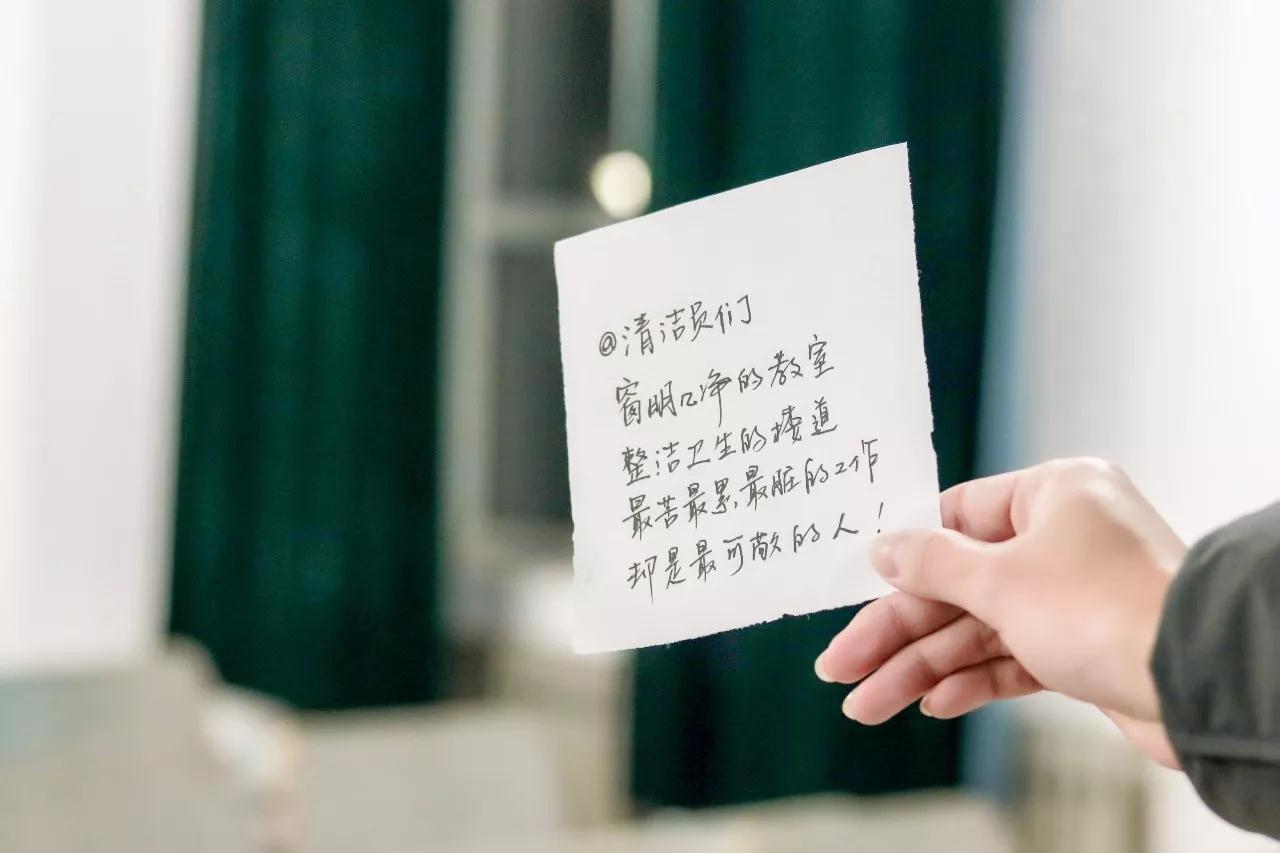 @清洁员们
窗明几净的教室
整洁卫生的楼道
最苦最累最脏的工作
却是最可敬的人!